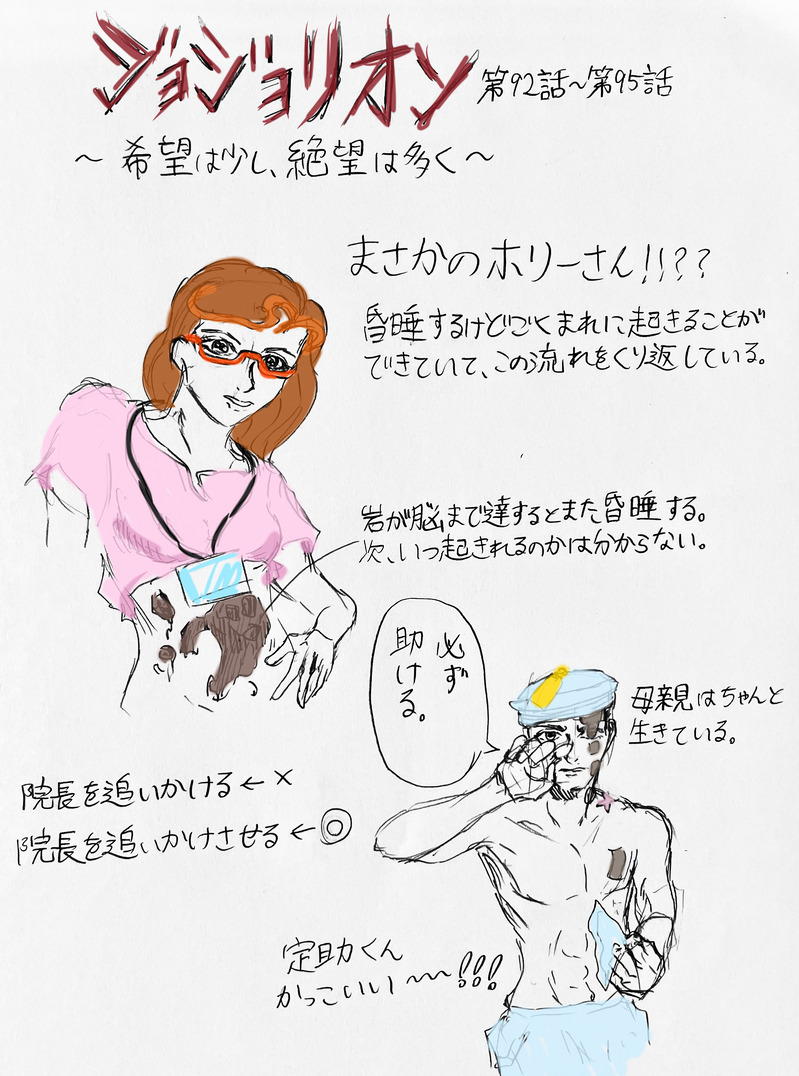 ジョジョリオン 第92話～第95話
～希望は少し、絶望は多く～
まさかのホリーさん!!??
昏睡するけどごくまれに起きることが
できていて、この流れをくり返している。
岩が脳まで達するとまた昏睡する。
次、いつ起きれるのかは分からない。
必ず
助ける。
母親はちゃんと
生きている。
院長を追いかける←×
院長を追いかけさせる←◎
定助くん
かっこいい～～!!!